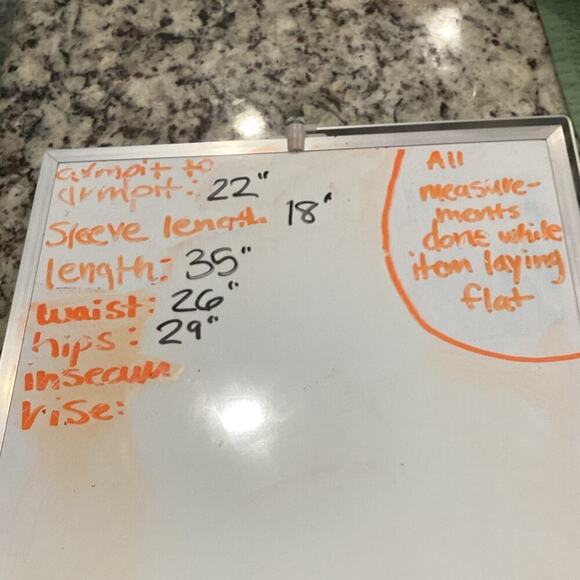 armpit to
armpit: 22"
Sleeve length 18"
length: 35"
waist: 26"
hips: 29"
inseam
rise:
All
measure-
ments
done while
item laying
flat